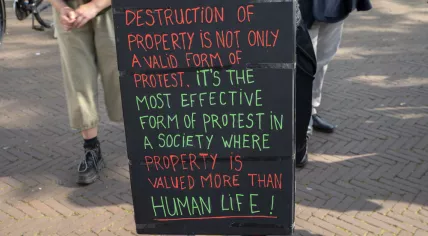 DESTRUCTION OF
PROPERTY IS NOT ONLY
A VALID FORM OF
PROTEST. IT'S THE
MOST EFFECTIVE
FORM OF PROTEST IN
A SOCIETY WHERE
PROPERTY IS
VALUED MORE THAN
HUMAN LIFE!